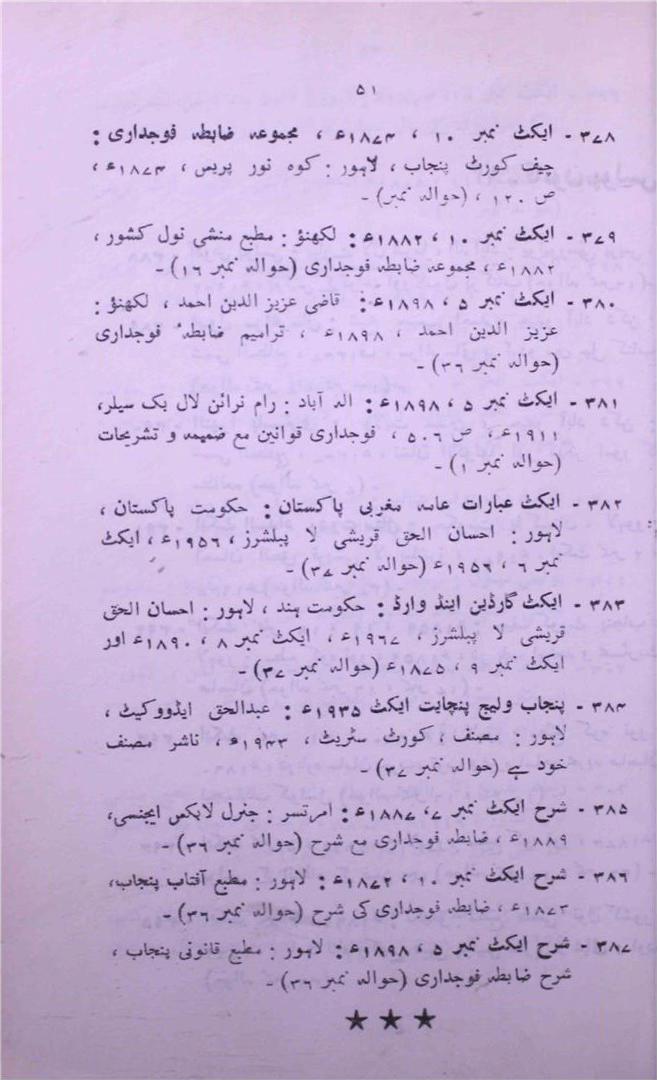 ۵۱
۳۷۸ - ایکٹ نمبر ۱۰ ، ۱۸۷۳ء ، مجموعہ ضابطہ فوجداری :
چیف کورٹ پنجاب ، لاہور : کوہ نور پریس ، ۱۸۷۳ء ،
ص ۱۲۰ ، (حوالہ نمبر) -
۳۷۹ - ایکٹ نمبر ۱۰ ، ۱۸۸۲ء : لکھنؤ : مطبع منشی نول کشور ،
۱۸۸۲ء ، مجموعہ ضابطہ فوجداری (حوالہ نمبر ۱۶) -
۳۸۰ - ایکٹ نمبر ۵ ، ۱۸۹۸ء : قاضی عزیز الدین احمد ، لکھنؤ :
عزیز الدین احمد ، ۱۸۹۸ء ، ترامیم ضابطہ فوجداری
(حوالہ نمبر ۳۶) -
۳۸۱ - ایکٹ نمبر ۵ ، ۱۸۹۸ء : الہ آباد : رام نرائن لال بک سیلر،
۱۹۱۱ء، ص ۵۰۶ ، فوجداری قوانین مع ضمیمہ و تشریحات
(حوالہ نمبر ۱) -
۳۸۲ - ایکٹ عبارات عامہ مغربی پاکستان : حکومت پاکستان ،
لاہور : احسان الحق قریشی لا پبلشرز ، ۱۹۵۶ء ، ایکٹ
نمبر ۶ ، ۱۹۵۶ء (حوالہ نمبر ۳۷) -
۳۸۳ - ایکٹ گارڈین اینڈ وارڈ : حکومت ہند ، لاہور : احسان الحق
قریشی لا پبلشرز ، ۱۹۶۷ء ، ایکٹ نمبر ۸ ، ۱۸۹۰ء اور
ایکٹ نمبر ۹ ، ۱۸۷۵ء (حوالہ نمبر ۳۷) -
۳۸۴ - پنجاب ولیج پنچایت ایکٹ ۱۹۳۵ء : عبدالحق ایڈووکیٹ ،
لاہور : مصنف ، کورٹ سٹریٹ ، ۱۹۴۳ء ، ناشر مصنف
خود ہے (حوالہ نمبر ۳۷) -
۳۸۵ - شرح ایکٹ نمبر ۷، ۱۸۸۷ء : امرتسر : جنرل لایکس ایجنسی،
۱۸۸۹ء ، ضابطہ فوجداری مع شرح (حوالہ نمبر ۳۶) -
۳۸۶ - شرح ایکٹ نمبر ۱۰ ، ۱۸۷۲ء : لاہور : مطبع آفتاب پنجاب،
۱۸۷۳ء ، ضابطہ فوجداری کی شرح (حوالہ نمبر ۳۶) -
۳۸۷ - شرح ایکٹ نمبر ۵ ، ۱۸۹۸ء : لاہور : مطبع قانونی پنجاب ،
شرح ضابطہ فوجداری (حوالہ نمبر ۳۶) -
★ ★ ★